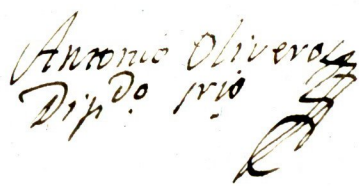 Antonio Oliveros
Dip.do prio